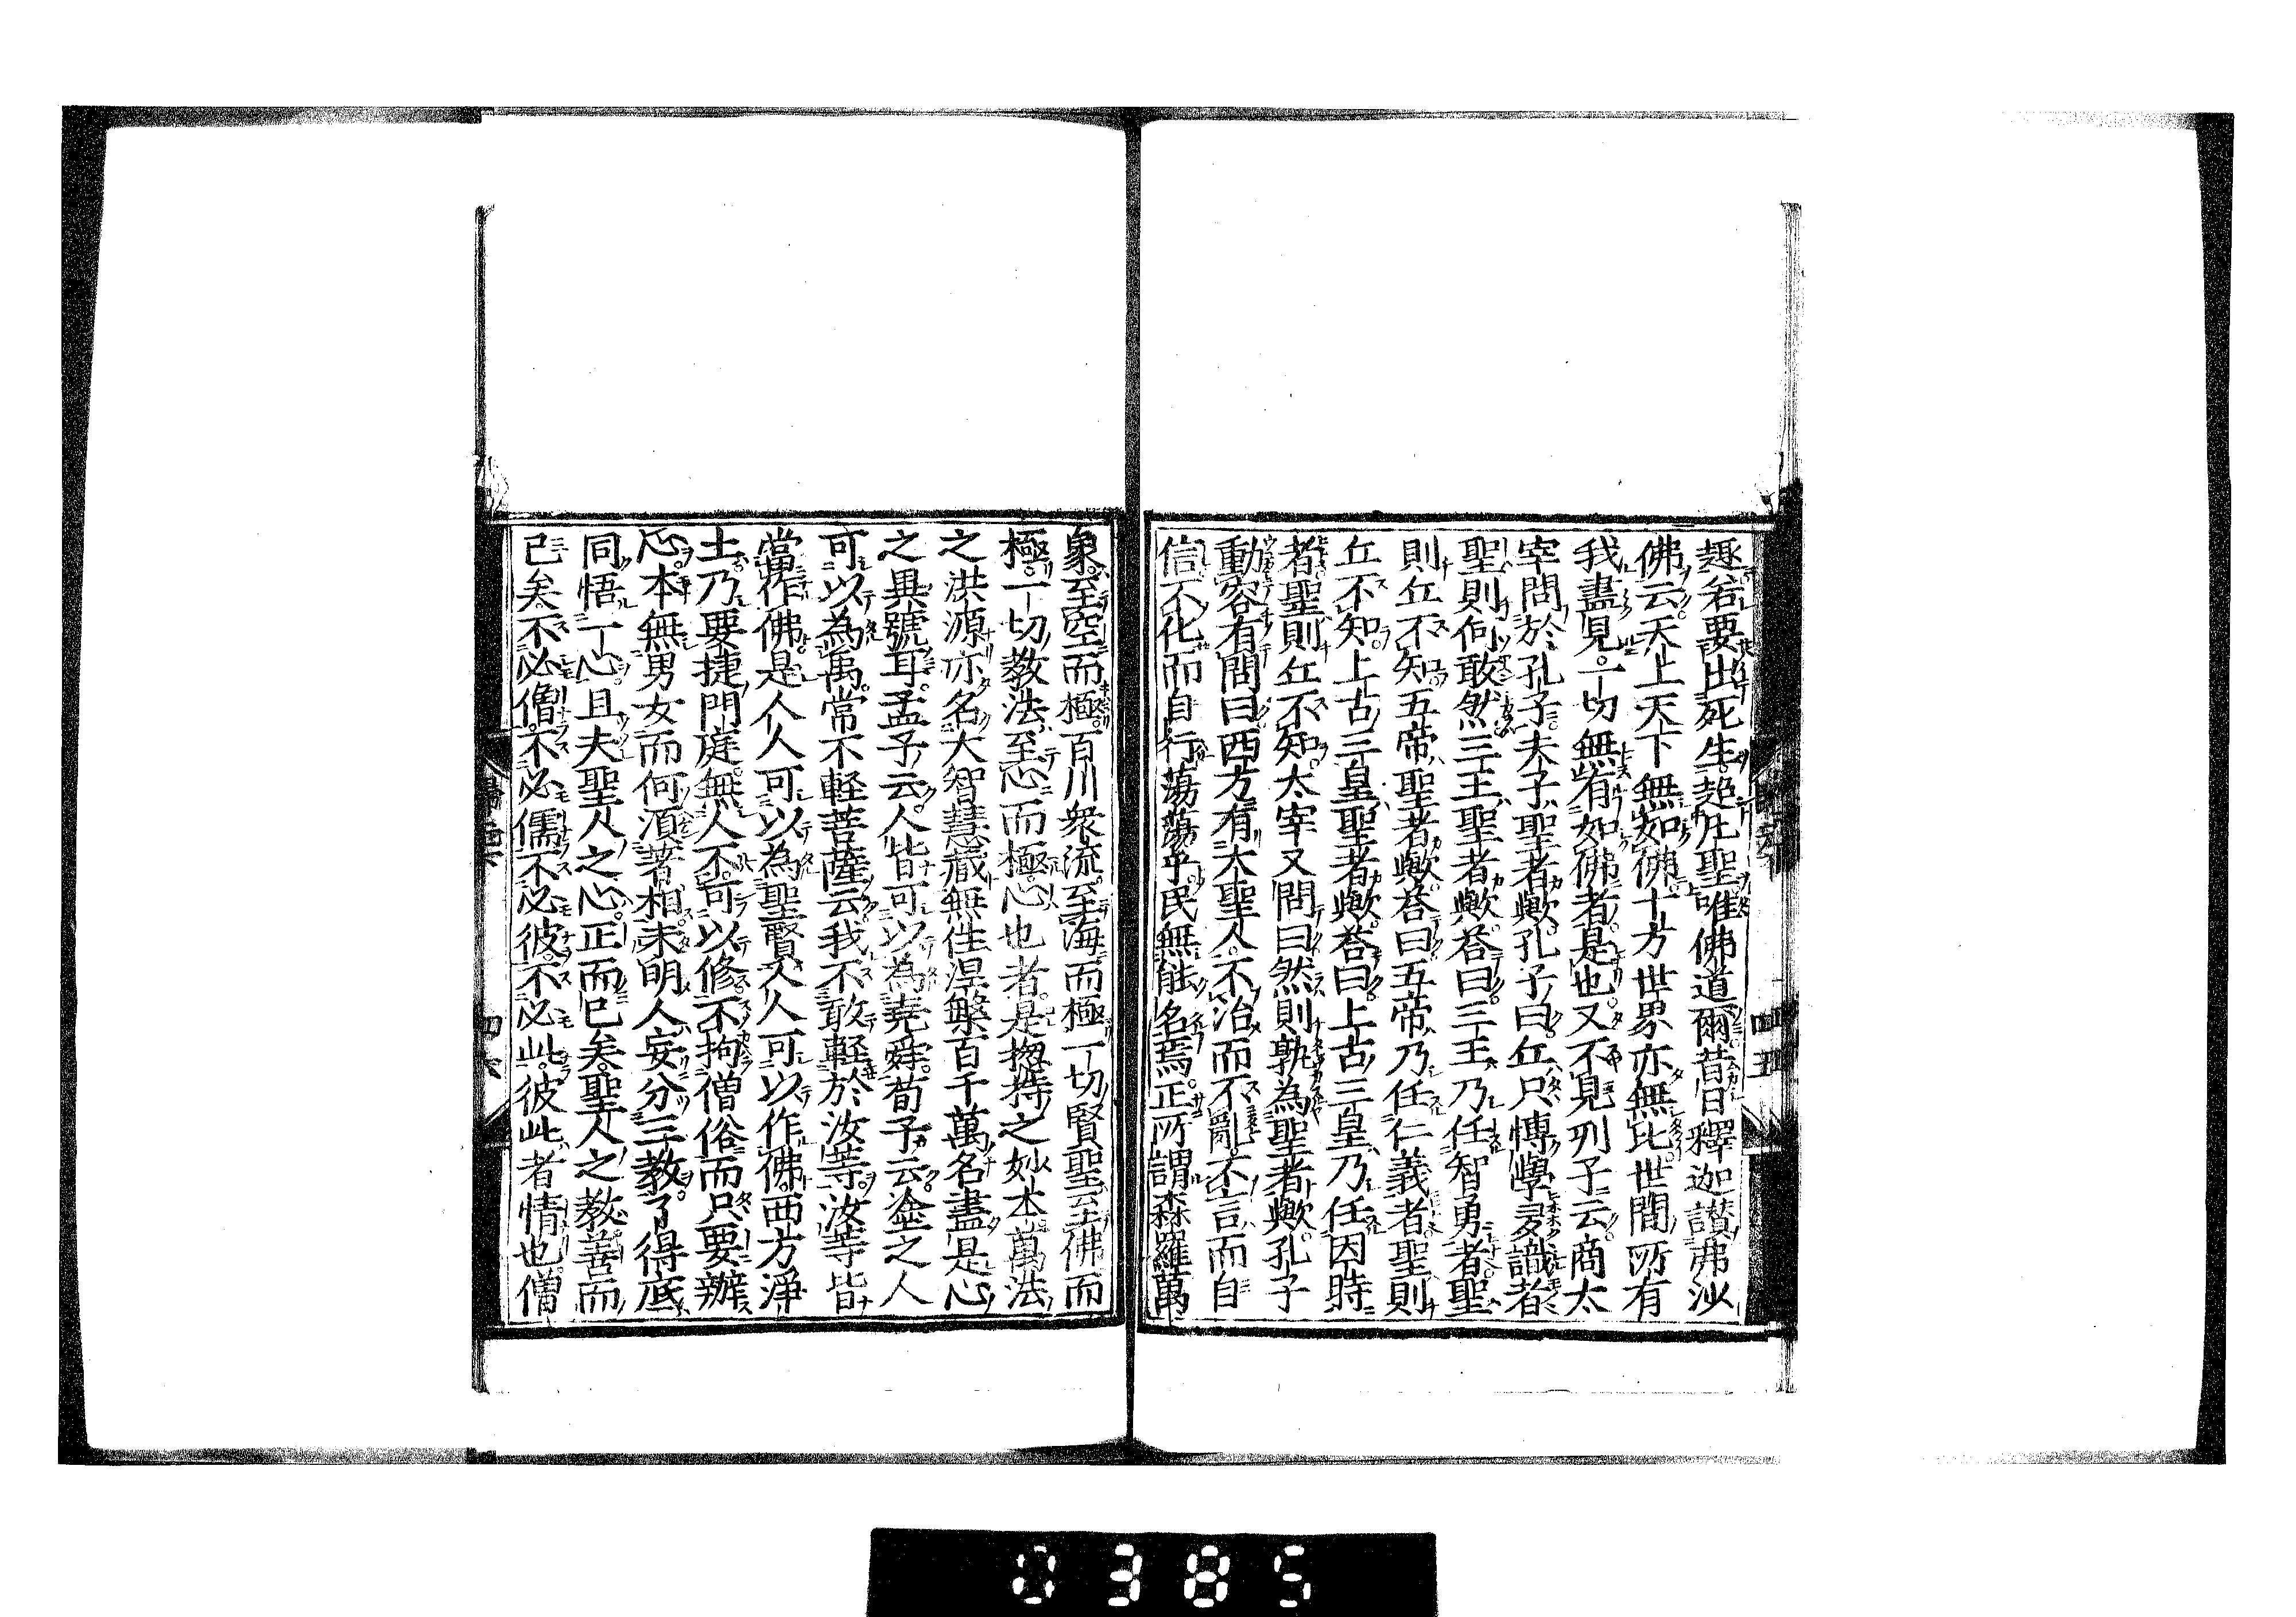 趣若要出死生超凡聖唯佛道爾昔日釋迦讃弗沙
佛云天上天下無如佛十方世界亦無比世間所有
我盡見一切無有如佛者是也又不見列子云商太
宰問於孔子夫子聖者歟孔子曰丘只愽學多識者
聖則何敢然三王聖者歟荅曰三王乃任智勇者聖
則丘不知五帝聖者歟荅曰五帝乃任仁義者聖則
丘不知上古三皇聖者歟荅曰上古三皇乃任因時
者聖則丘不知太宰又問曰然則孰為聖者歟孔子
動容有間曰西方有大聖人不治而不亂不言而自
信不化而自行蕩蕩乎民無能名焉正所謂森羅萬
象至空而極百川衆流至海而極一切賢聖至佛而
極一切教法至心而極心也者是揔持之妙本萬法
之洪源亦名大智慧藏無住涅槃百千萬名盡是心
之異號耳孟子云人皆可以為堯舜荀子云塗之人
可以為禹常不軽菩薩云我不敢軽於汝等汝等皆
當作佛是人人可以為聖賢人人可以作佛西方淨
土乃要捷門庭無人不可以修不拘僧俗而只要辦
心本無男女而何須著相未明人妄分三教了得底
同悟一心且夫聖人之心正而已矣聖人之教善而
已矣不必僧不必儒不必彼不必此彼此者情也僧
四五
四六
0385